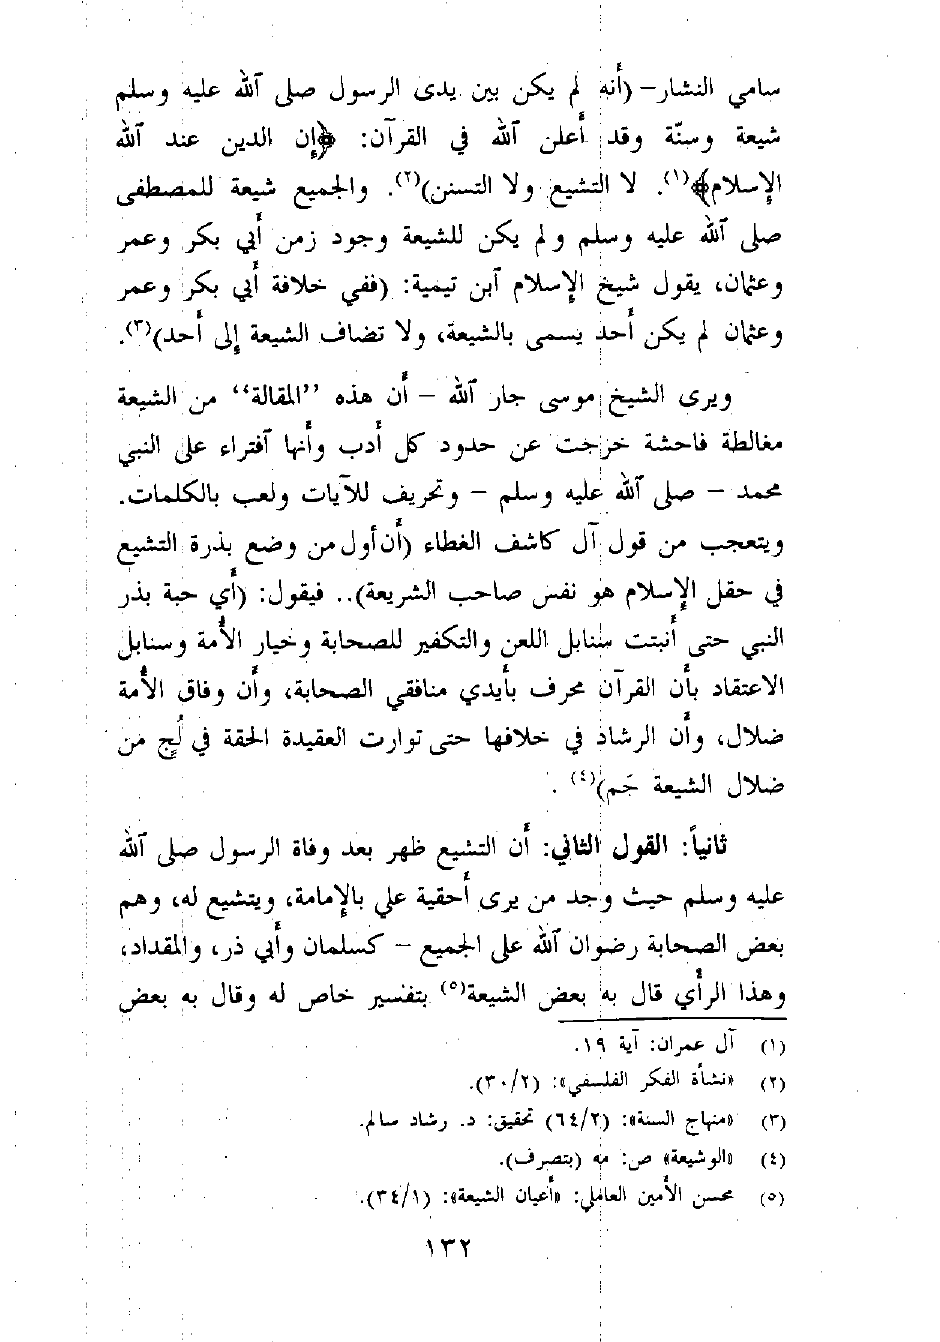 سامي النشار- (أنه لم يكن بين يدى الرسول صلى الله عليه وسلم
شيعة وسنّة وقد أعلن الله في القرآن: ﴿إن الدين عند الله
الإسلام﴾(١). لا التشيع ولا التسنن)(٢). والجميع شيعة للمصطفى
صلى الله عليه وسلم ولم يكن للشيعة وجود زمن أبي بكر وعمر
وعثمان، يقول شيخ الإسلام آبن تيمية: (ففي خلافة أبي بكر وعمر
وعثمان لم يكن أحد يسمى بالشيعة، ولا تضاف الشيعة إلى أحد)(٣).
ويرى الشيخ موسى جار الله - أن هذه ”المقالة“ من الشيعة
مغالطة فاحشة خرجت عن حدود كل أدب وأنها آفتراء على النبي
محمد - صلى الله عليه وسلم - وتحريف للآيات ولعب بالكلمات.
ويتعجب من قول آل كاشف الغطاء (أن أول من وضع بذرة التشيع
في حقل الإسلام هو نفس صاحب الشريعة).. فيقول: (أي حبة بذر
النبي حتى أنبتت سنابل اللعن والتكفير للصحابة وخيار الأمة وسنابل
الاعتقاد بأن القرآن محرف بأيدي منافقي الصحابة، وأن وفاق الأمة
ضلال، وأن الرشاد في خلافها حتى توارت العقيدة الحقة في لُجٍ من
ضلال الشيعة جَم)(٤).
ثانياً: القول الثاني: أن التشيع ظهر بعد وفاة الرسول صلى الله
عليه وسلم حيث وجد من يرى أحقية علي بالإمامة، ويتشيع له، وهم
بعض الصحابة رضوان الله على الجميع - كسلمان وأبي ذر، والمقداد،
وهذا الرأي قال به بعض الشيعة(٥) بتفسير خاص له وقال به بعض
(١) آل عمران: آية ١٩.
(٢) «نشأة الفكر الفلسفي»: (٣٠/٢).
(٣) «منهاج السنة»: (٦٤/٢) تحقيق: د. رشاد سالم.
(٤) «الوشيعة» ص: مه (بتصرف).
(٥) محسن الأمين العاملي: «أعيان الشيعة»: (٣٤/١).
١٣٢